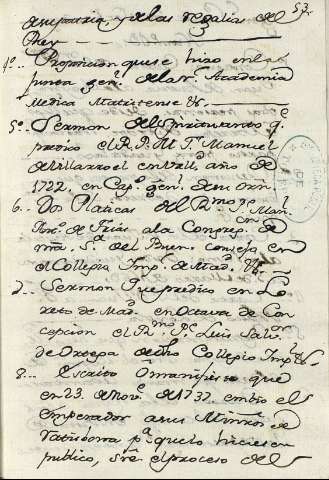 53.
su patria, y de las regalias del
Rey
4º.. Proposicion que se hizo en la
junta genl. de la Rl. Academia
Medica Matritense &c.
5º.. Sermon del Spiritu santo q.e
predico el R. P. M. Fr. Manuel
de Villarroel en Valld. año de
1722. en Cap.º genl. de su orn.
6.. Dos Platicas del Rmo. Pe. Man.l
Ign.º de Frias a la Congreg.n de
nra. Sa. del Buen consejo en
el Collegio Imp.l de Mad. &c.
7.. Sermon que predico en Lo-
reto de Mad. en Octava de Con-
cepcion el Rmo. Pe. Luis Salvor.
de Ortega de dho Collegio Impl. &c.
8... Escrito o manifiesto que
en 23. de Nove. de 1737. embio el
Emperador a sus Minros. de
Ratisbona pa. que lo hiciesen
publico, sre. el proceso del